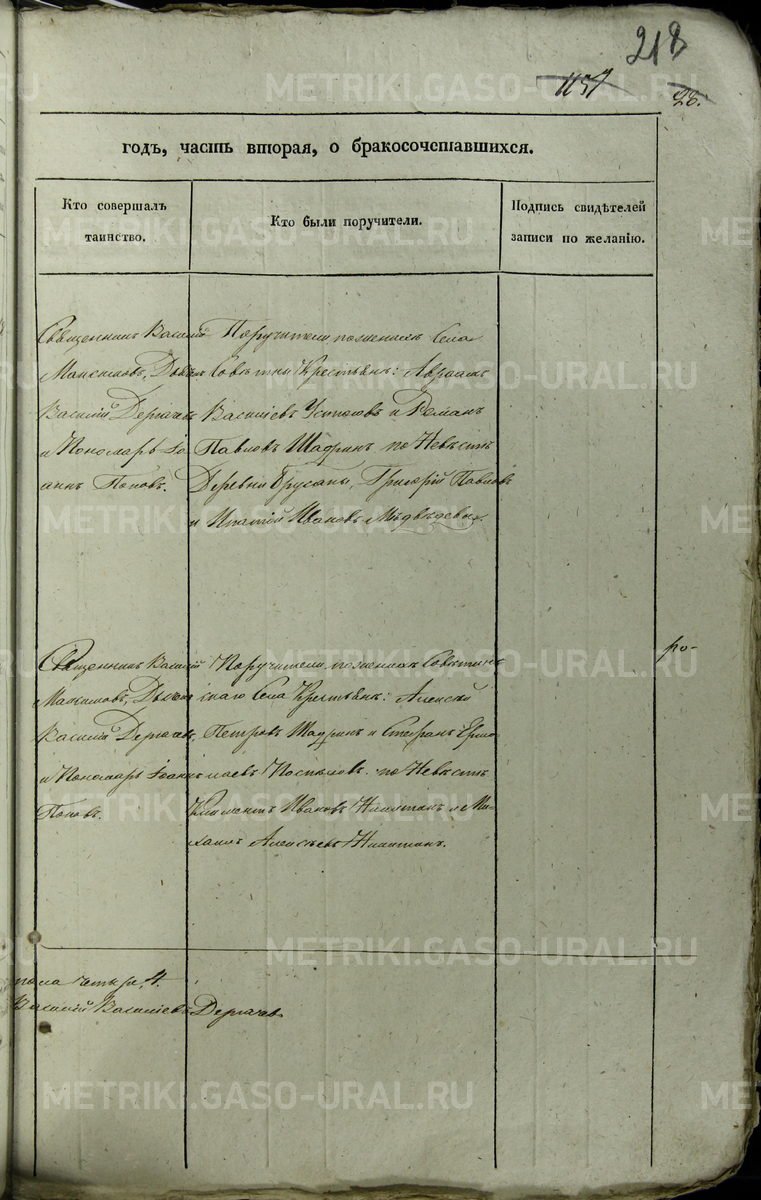 218
1157
28.
годъ, часть вторая, о бракосочетавшихся.
Кто совершалъ таинство.
Кто были поручители.
Подпись свидѣтелей записи по желанію.
Священникъ Василій
Максимовъ, Дьячекъ
Василій Дергачевъ
и Пономарь Іо
аннъ Поповъ.
Поручители по женихѣ Села
Крестьяне: Авраамъ
Васильевъ и Романъ
Павловъ Шадринъ по Невѣстѣ
Деревни Брусяны, Григорій Павловъ
и Игнатій Ивановъ Мѣдвѣдевы.
Священникъ Василій
Максимовъ, Дьячекъ
Василій Дергачевъ,
и Пономарь Іоаннъ
Поповъ.
Поручители по женихѣ Совѣтин
скаго Села Крестьяне: Алексѣй
Петровъ Шадринъ и Стефанъ Ермо
лаевъ Поспѣловъ. по Невѣстѣ
Климентъ Ивановъ Никитинъ и Ми-
хаилъ Алексѣевъ Никитинъ.
ро-
пола четыре, 4.
Василій Васильевъ Дергачевъ
METRIKI.GASO-URAL.RU